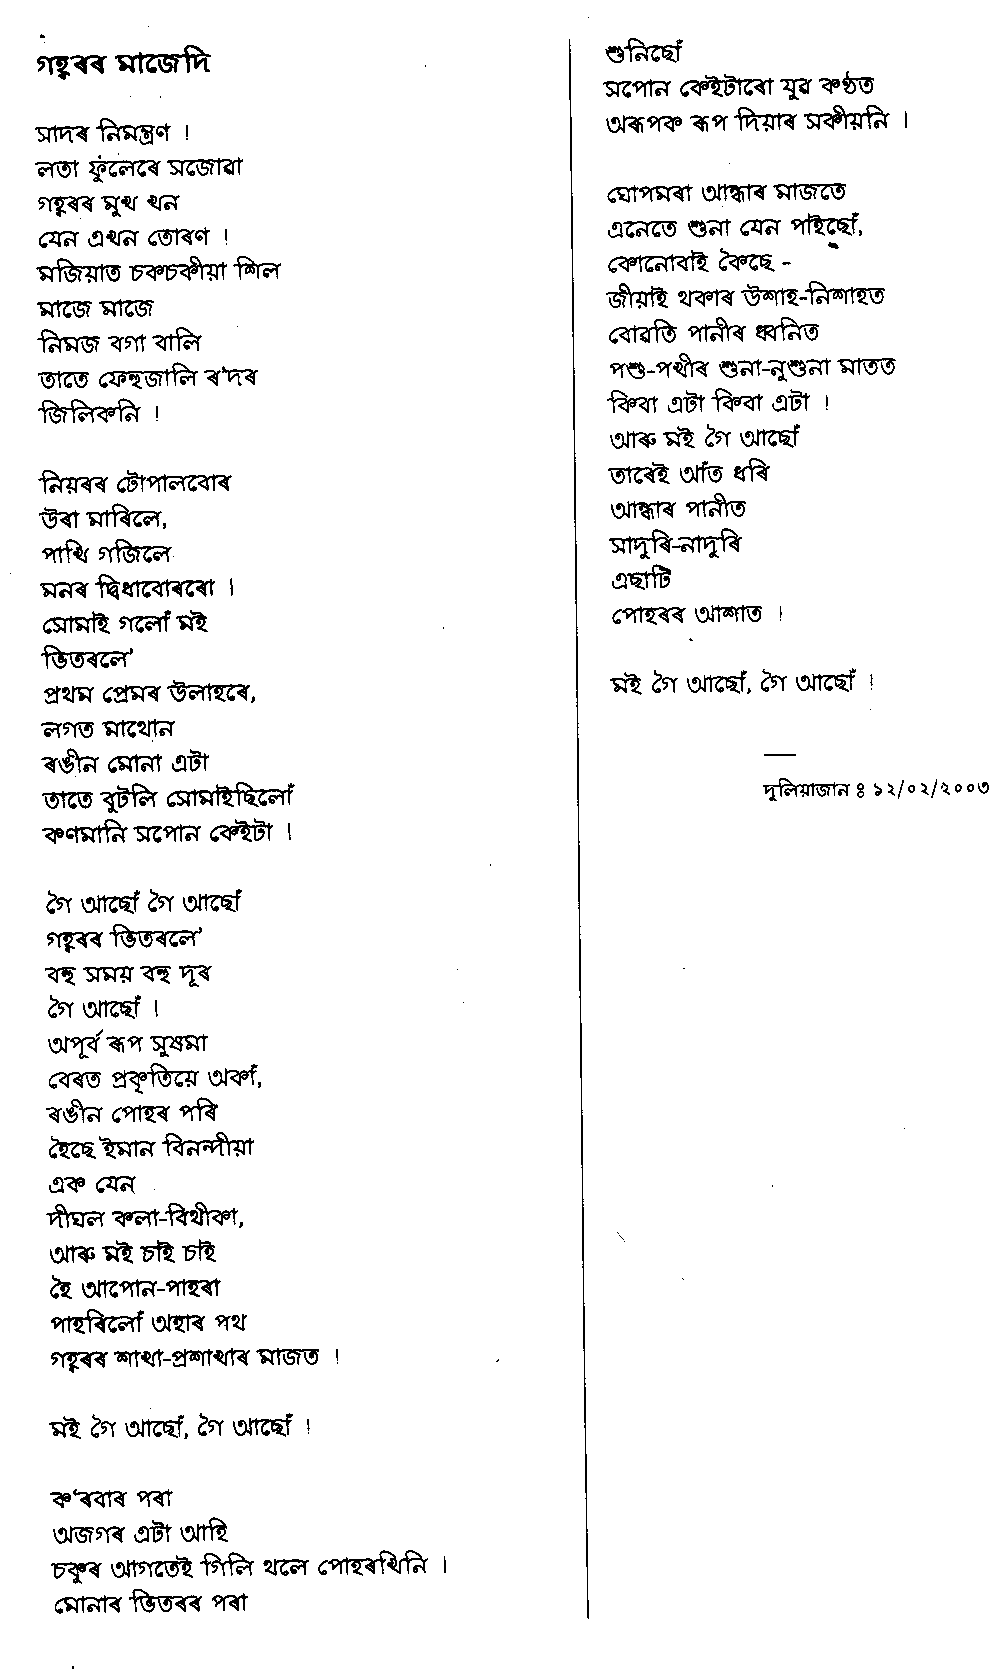 গহ্বৰৰ মাজেদি
সাদৰ নিমন্ত্ৰণ !
লতা ফুলেৰে সজোৱা
গহ্বৰৰ মুখ খন
যেন এখন তোৰণ !
মজিয়াত চকচকীয়া শিল
মাজে মাজে
নিমজ বগা বালি
তাতে ফেহুজালি ৰ'দৰ
জিলিকনি !
নিয়ৰৰ টোপালবোৰ
উৰা মাৰিলে,
পাখি গজিলে
মনৰ দ্বিধাবোৰৰো ।
সোমাই গলোঁ মই
ভিতৰলে'
প্ৰথম প্ৰেমৰ উলাহৰে,
লগত মাথোন
ৰঙীন মোনা এটা
তাতে বুটলি সোমাইছিলোঁ
কণমানি সপোন কেইটা ।
গৈ আছোঁ গৈ আছোঁ
গহ্বৰৰ ভিতৰলে'
বহু সময় বহু দূৰ
গৈ আছোঁ ।
অপূৰ্ব ৰূপ সুষমা
বেৰত প্ৰকৃতিয়ে অকাঁ,
ৰঙীন পোহৰ পৰি
হৈছে ইমান বিনন্দীয়া
এক যেন
দীঘল কলা-বিথীকা,
আৰু মই চাই চাই
হৈ আপোন-পাহৰা
পাহৰিলোঁ অহাৰ পথ
গহ্বৰৰ শাখা-প্ৰশাখাৰ মাজত ।
মই গৈ আছোঁ, গৈ আছোঁ ।
ক'ৰবাৰ পৰা
অজগৰ এটা আহি
চকুৰ আগতেই গিলি থলে পোহৰখিনি ।
মোনাৰ ভিতৰৰ পৰা
শুনিছোঁ
সপোন কেইটাৰো যুৱ কণ্ঠত
অৰূপক ৰূপ দিয়াৰ সকীয়নি ।
ঘোপমৰা আন্ধাৰ মাজতে
এনেতে শুনা যেন পাইছোঁ,
কোনোবাই কৈছে -
জীয়াই থকাৰ উশাহ-নিশাহত
বোৱতি পানীৰ ধ্বনিত
পশু-পখীৰ শুনা-নুশুনা মাতত
কিবা এটা কিবা এটা !
আৰু মই গৈ আছোঁ
তাৰেই আঁত ধৰি
আন্ধাৰ পানীত
সাদুৰি-নাদুৰি
এছাটি
পোহৰৰ আশাত ।
মই গৈ আছোঁ, গৈ আছোঁ ।
দুলিয়াজান ঃ ১২/০২/২০০৩